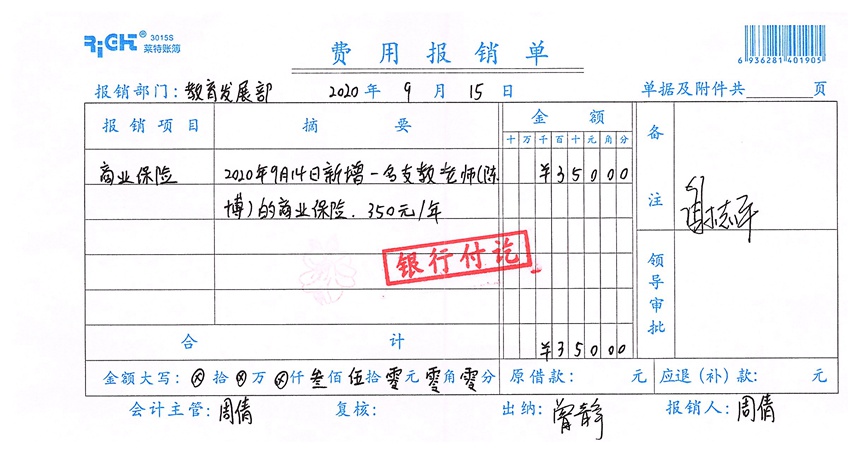 RiCH® 3015S
莱特账簿
费用报销单
6 936281 401905
报销部门：教育发展部 2020年9月15日 单据及附件共 页
报销项目 摘要 金额 备注
十万千百十元角分
商业保险 2020年9月14日新增一名支教老师(陈 ¥35000
博)的商业保险.350元/年
银行付讫
领导审批
合计 ¥35000
金额大写：⊗拾⊗万⊗仟叁佰伍拾零元零角零分 原借款： 元 应退（补）款： 元
会计主管：周倩 复核： 出纳：曾静 报销人：周倩